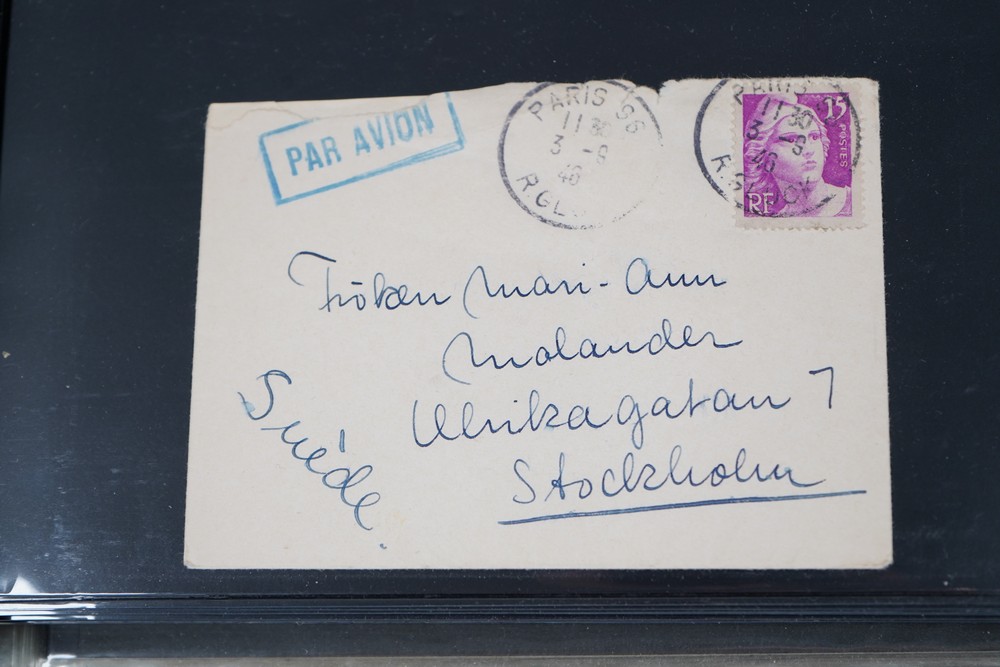 PAR AVION
PARIS 96
11 30
3 -9
46
R.GL
PARIS
11 30
3 -9
46
R.GL
15
POSTES
RF
Fröken Mari-Ann
Molander
Ulrikagatan 7
Stockholm
Suède.